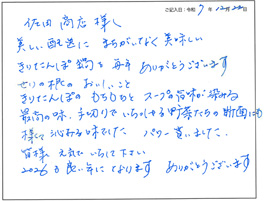 ご記入日:令和 7 年 12月 28日
佐田商店 様へ
美しい配送に まちがいなく美味しい
きりたんぽ鍋を 毎年 ありがとうございます
せりの根の おいしいこと
きりたんぽの もちもちと スープの旨味が染みる
最高の味、手切りでいらっしゃる野菜たちの断面にも
様して沁みる味でした パワー貰いました。
皆様 元気でいらして下さい
2026も良い年になります ありがとうございます